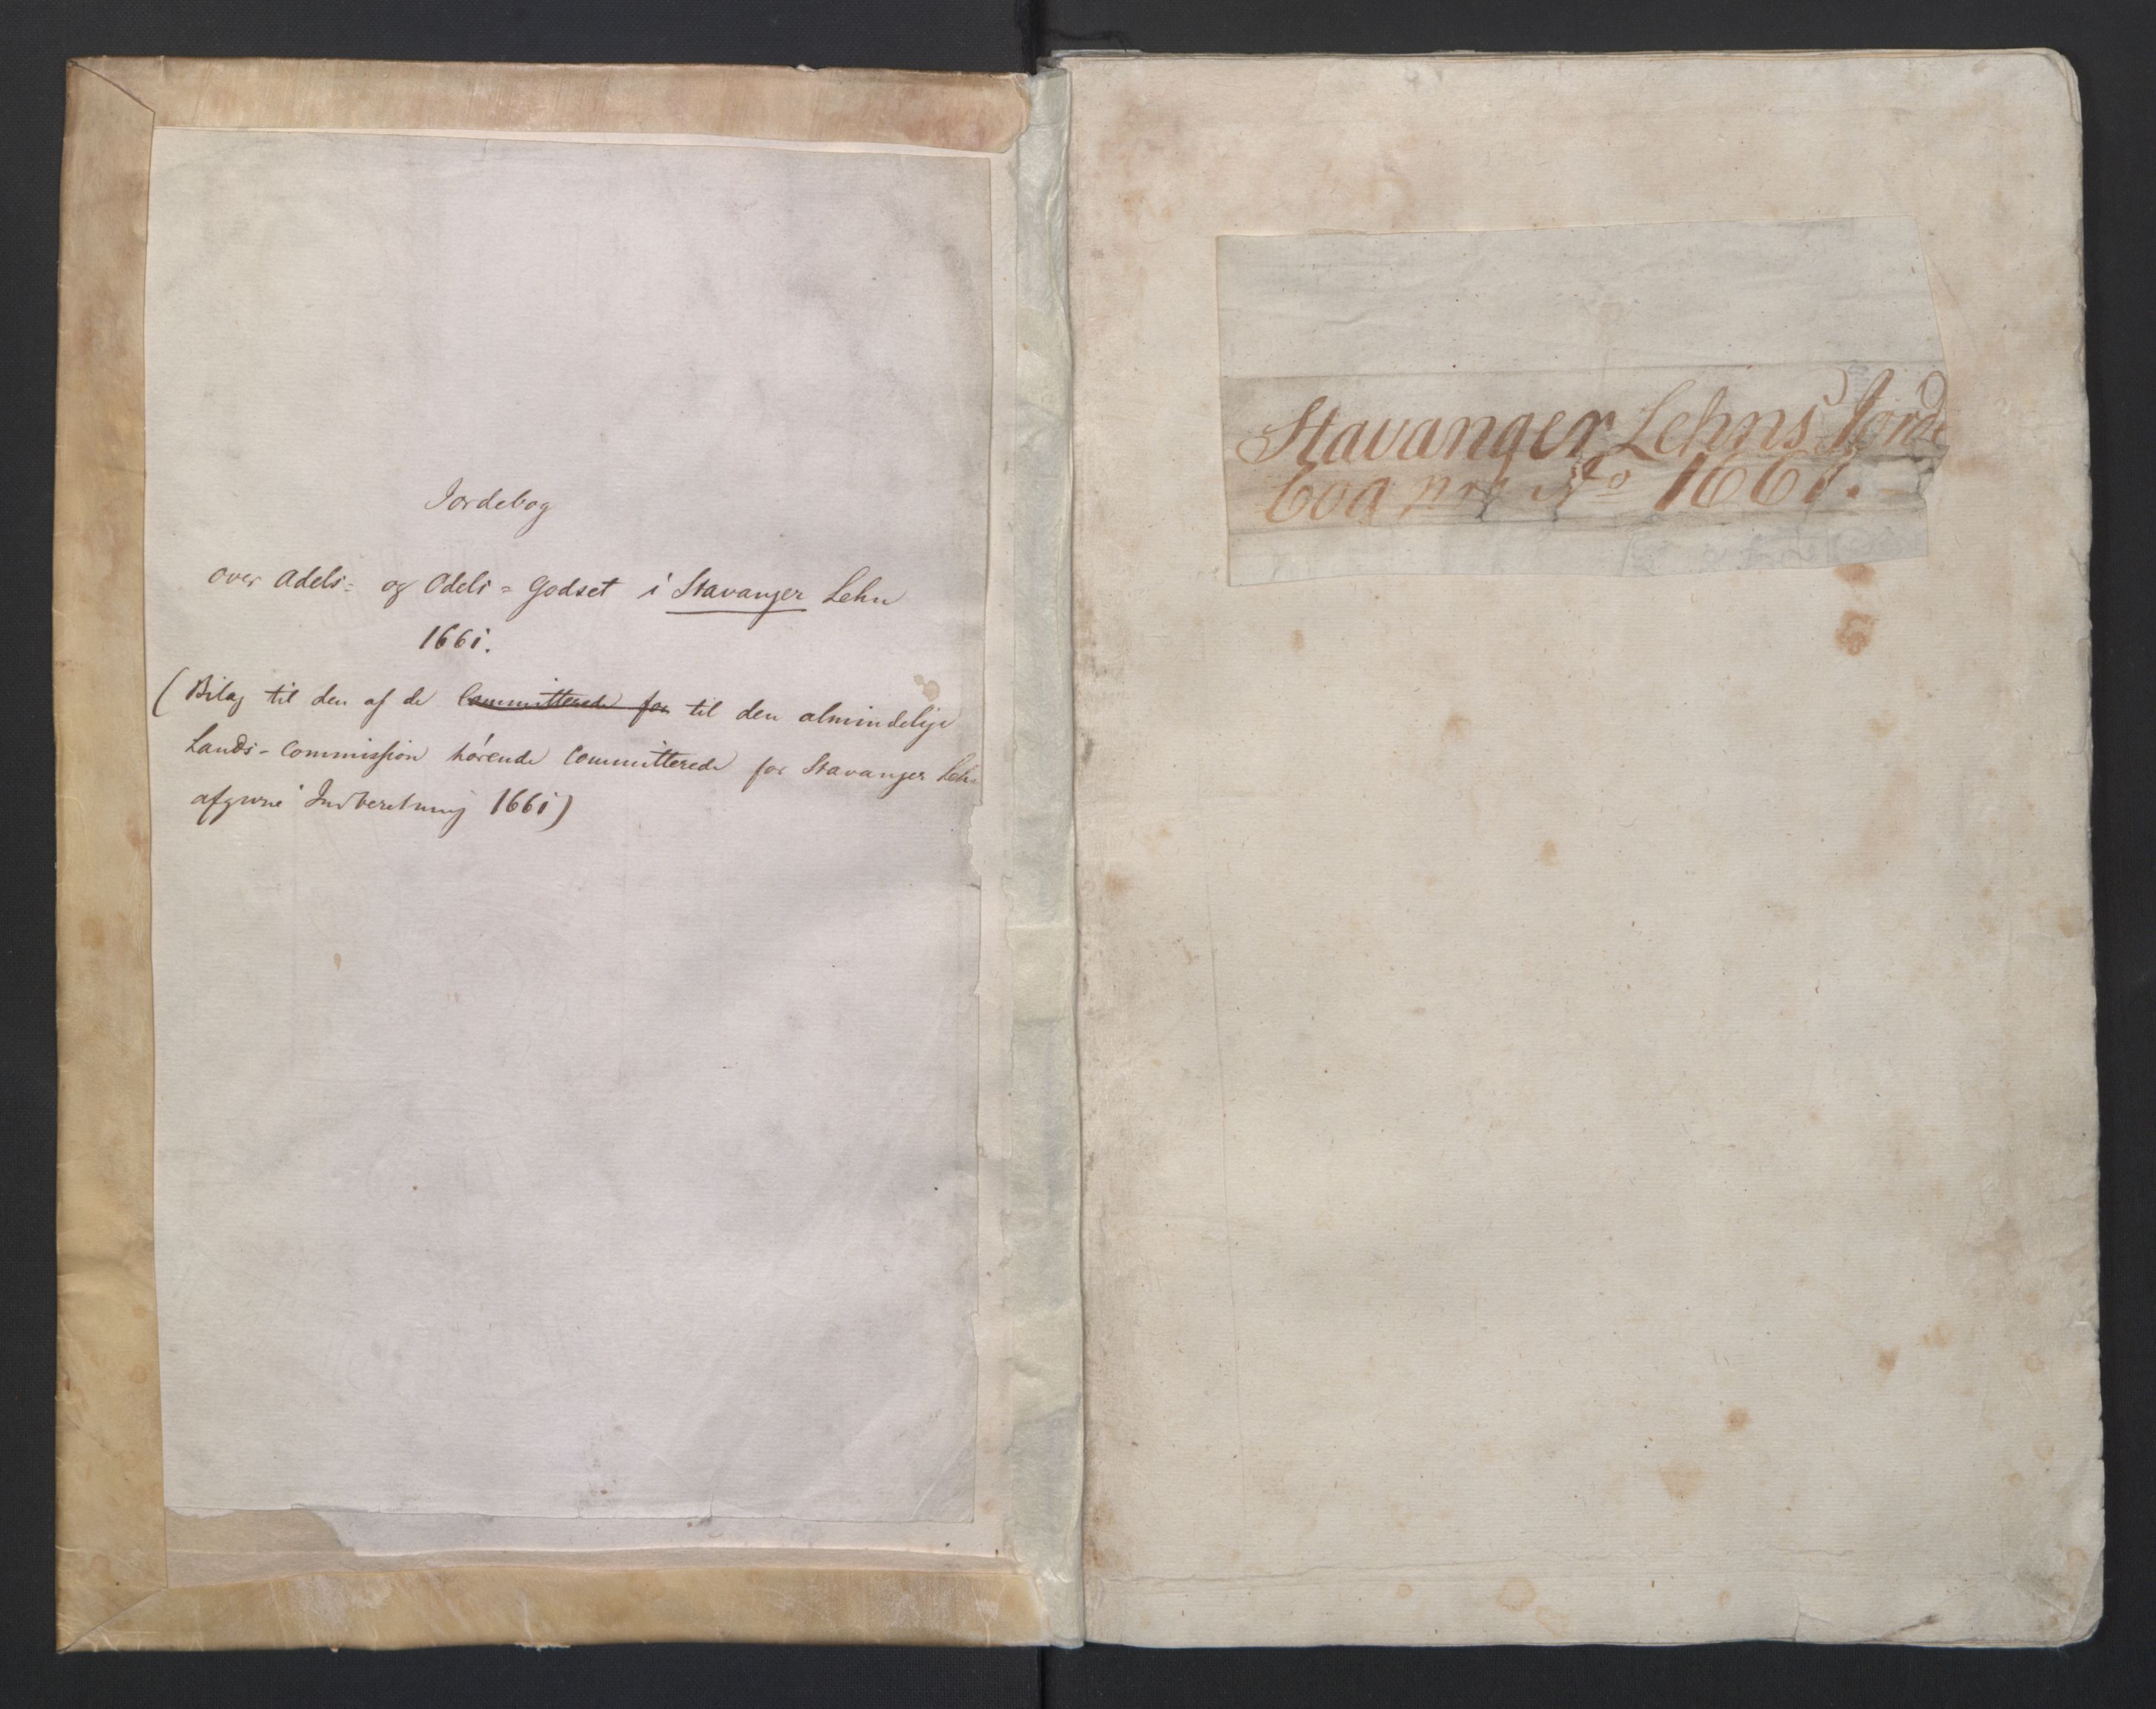 Jordebog
over Adels= og Odels=Godset i Stavanger Lehn
1661.
(Bilag til den af de Committerede for til den almindelige
Lands-Commission hörende Committerede for Stavanger Lehn
afgivne Indberetning 1661)
Stavanger Lehns Jorde
bog 1661.